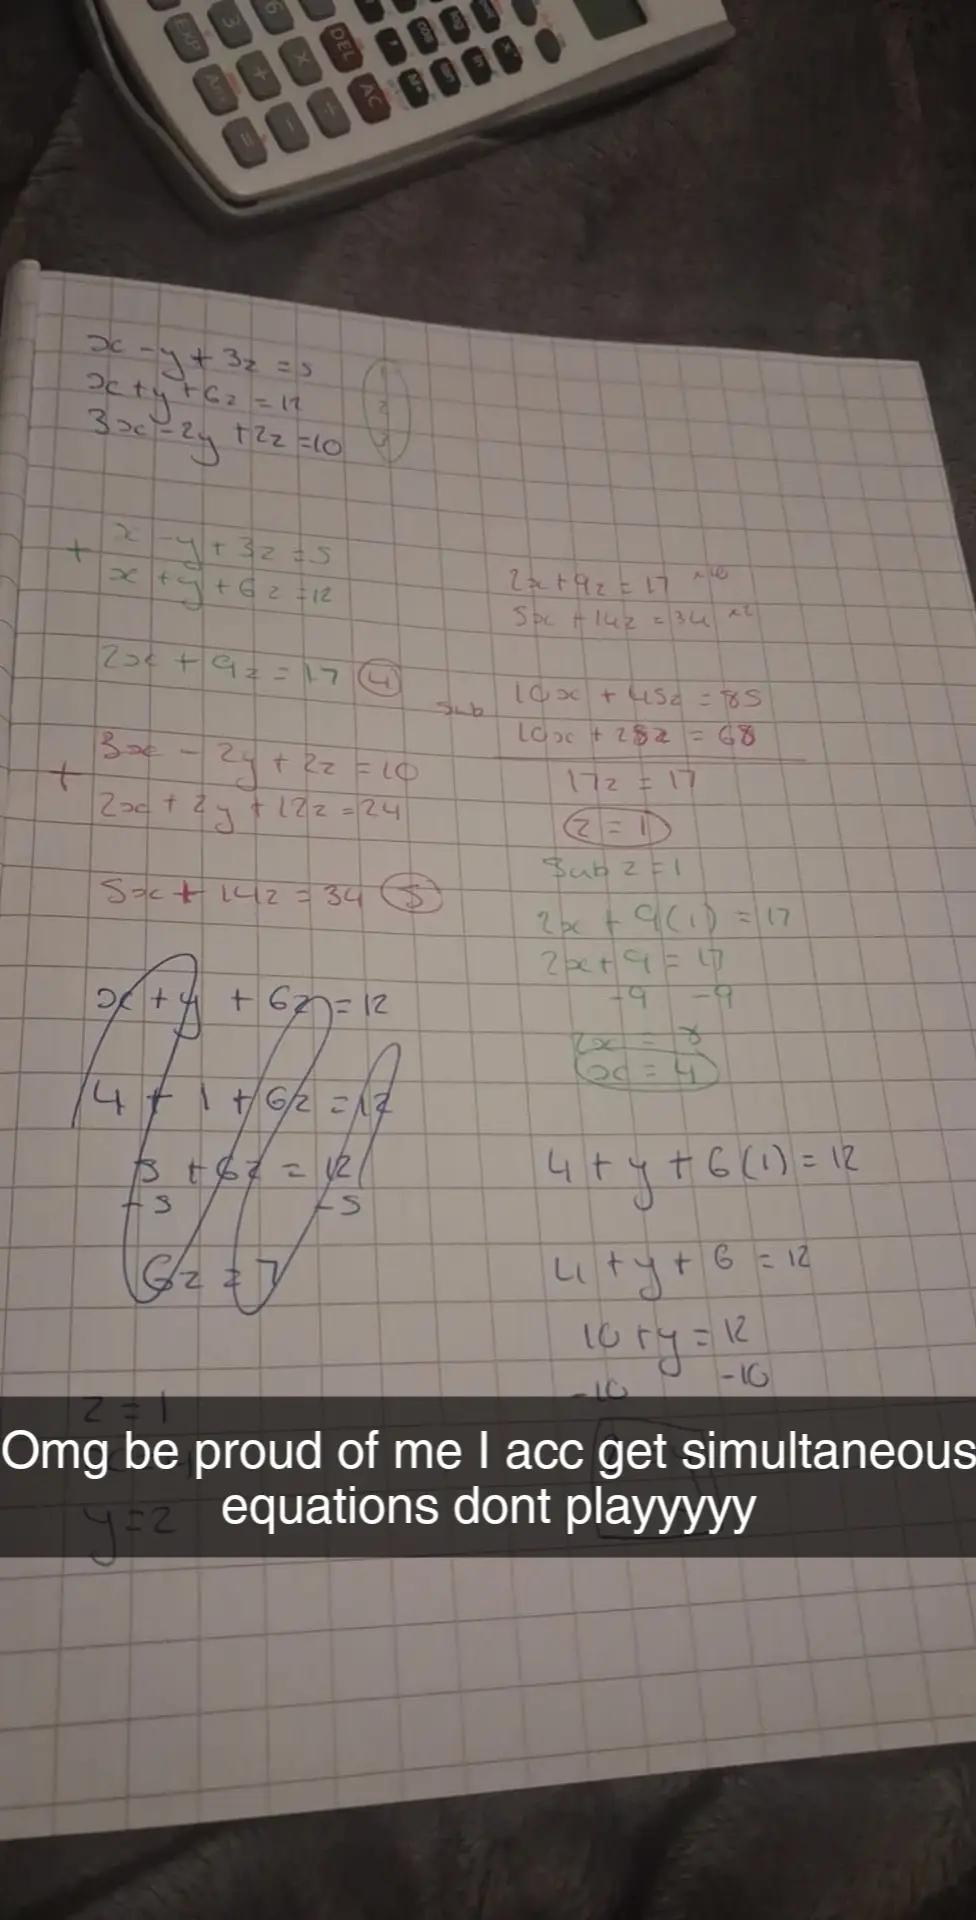 EXP
3
6
Ans
+
×
DEL
=
−
÷
AC
M+
x - y + 3z = 5
x + y + 6z = 12
3x - 2y + 2z = 10
2
+
x - y + 3z = 5
x + y + 6z = 12
2x + 9z = 17 4
+
3x - 2y + 2z = 10
2x + 2y + 12z = 24
5x + 14z = 34 5
x + y + 6z = 12
4 + 1 + 6z = 12
5 + 6z = 12
-5 -5
6z = 7
z = 1
y = 2
2x + 9z = 17
5x + 14z = 34 x2
Sub
10x + 45z = 85
10x + 28z = 68
17z = 17
z = 1
Sub z = 1
2x + 9(1) = 17
2x + 9 = 17
-9 -9
2x = 8
x = 4
4 + y + 6(1) = 12
4 + y + 6 = 12
10 + y = 12
-10 -10
Omg be proud of me I acc get simultaneous
equations dont playyyyy